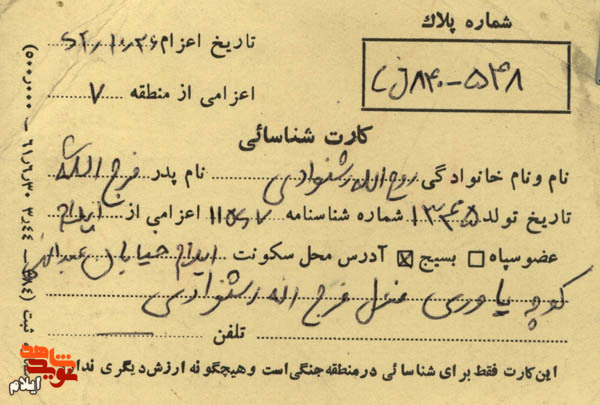 شماره پلاك
تاریخ اعزام ۶۲ر۱۰ر۲۶
اعزامی از منطقه ۷
کارت شناسائی
نام و نام خانوادگی روح الله رشنوادی نام پدر فرج الله
تاریخ تولد ۱۳۴۵ شماره شناسنامه اعزامی از ایلام
عضو سپاه بسیج آدرس محل سکونت ایلام خیابان
کوچه یاوری منزل فرج اله رشنوادی
تلفن
این کارت فقط برای شناسائی در منطقه جنگی است و هیچگونه ارزش دیگری
نوید شاهد
ایلام